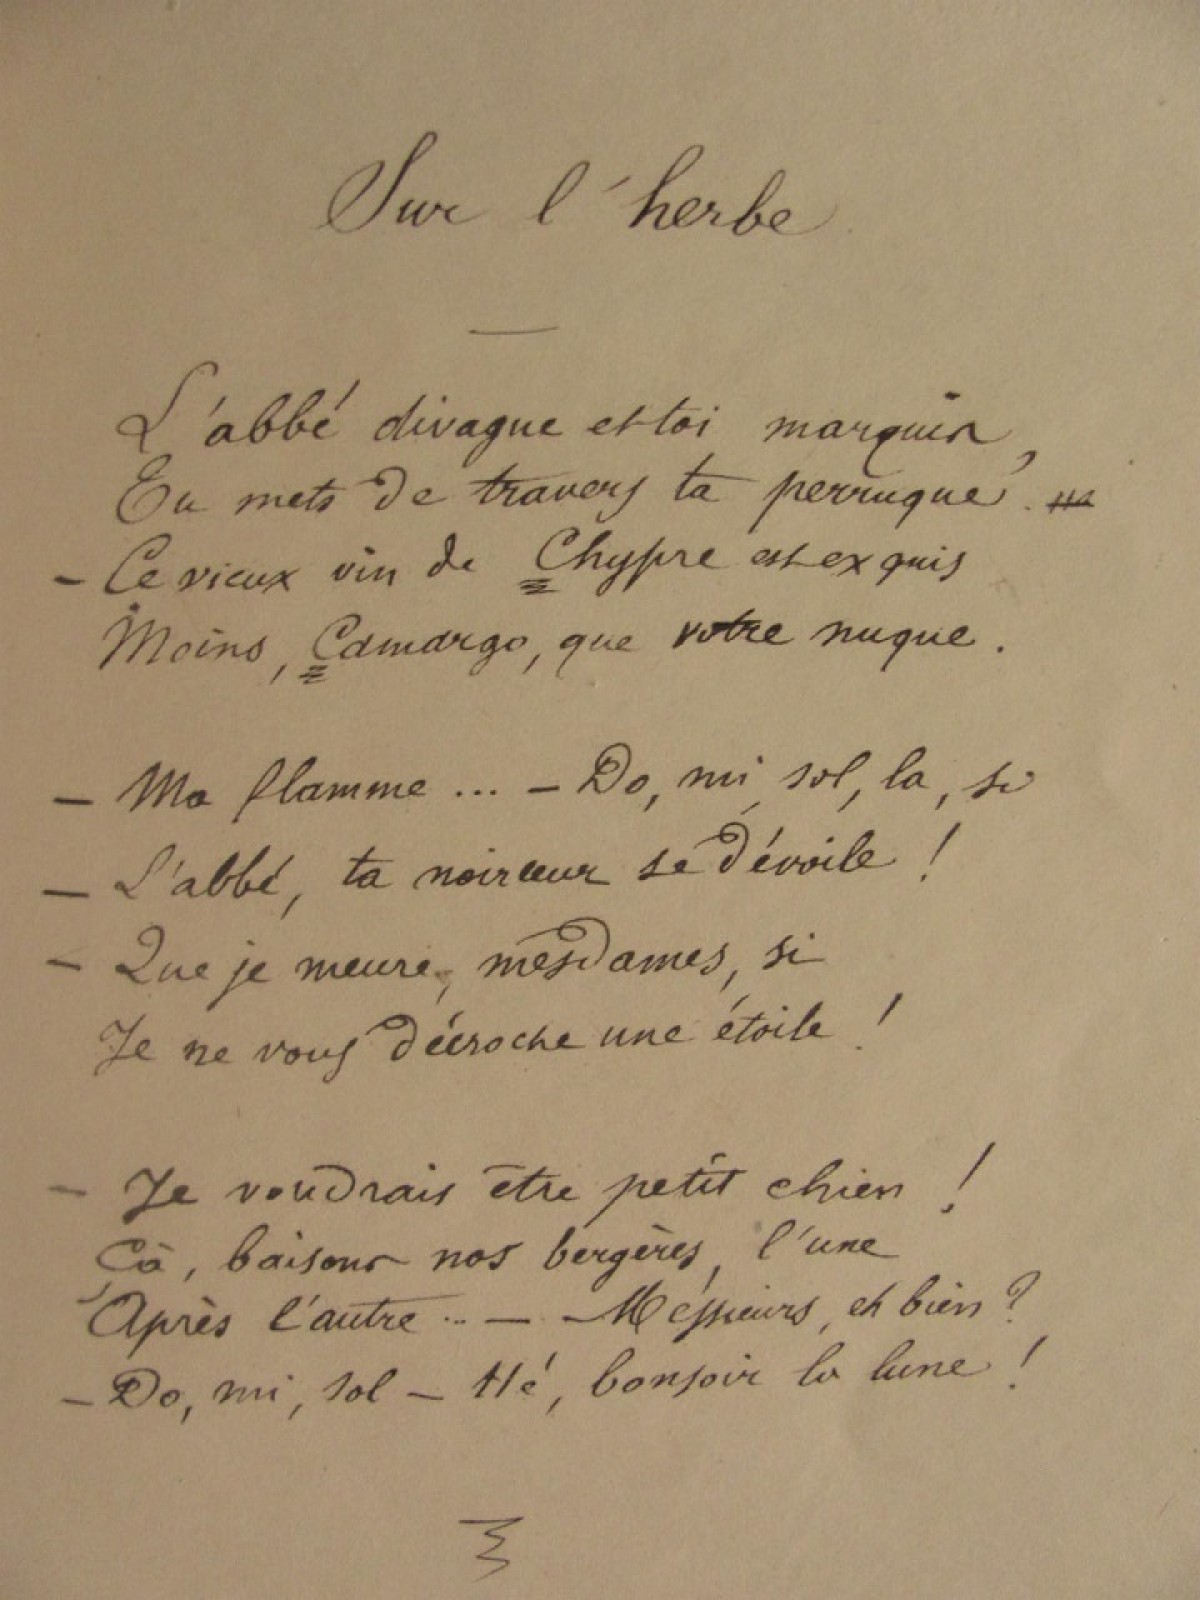 Sur l'herbe
L'abbé divague et toi marquis,
Tu mets de travers ta perruque.
- Ce vieux vin de Chypre est exquis
Moins, Camargo, que votre nuque.
- Ma flamme ... - Do, mi, sol, la, si
- L'abbé, ta noirceur se dévoile !
- Que je meure, mesdames, si
Je ne vous décroche une étoile !
- Je voudrais être petit chien !
Çà, baisons nos bergères, l'une
Après l'autre ... - Messieurs, eh bien ?
- Do, mi, sol - Hé, bonsoir la lune !